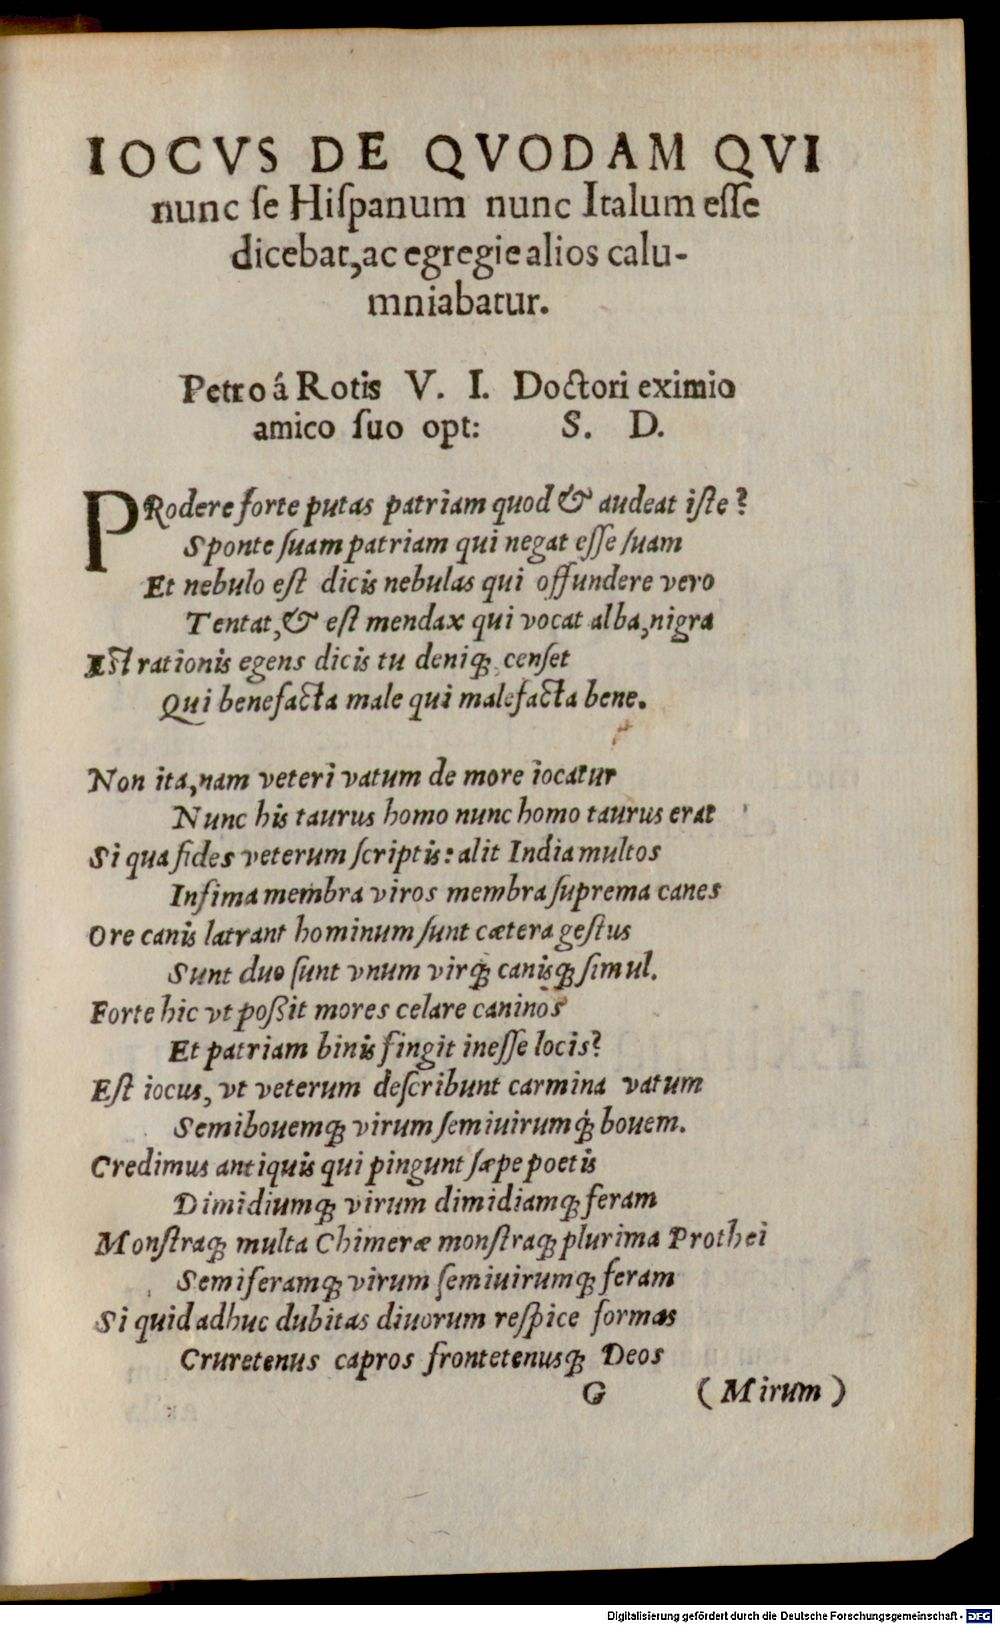 IOCVS DE QVODAM QVI
nunc ſe Hiſpanum nunc Italum eſſe
dicebat, ac egregie alios calu-
mniabatur.
Petro á Rotis V. I. Doctori eximio
amico ſuo opt: S. D.
PRodere forte putas patriam quod & audeat iſte?
Sponte ſuam patriam qui negat eſſe ſuam
Et nebulo eſt dicis nebulas qui offundere vero
Tentat, & eſt mendax qui vocat alba, nigra
Eſt rationis egens dicis tu deniqꝫ cenſet
Qui benefacta male qui malefacta bene.
Non ita, nam veteri vatum de more iocatur
Nunc his taurus homo nunc homo taurus erat
Si qua fides veterum ſcriptis: alit India multos
Infima membra viros membra ſuprema canes
Ore canis latrant hominum ſunt cætera geſtus
Sunt duo ſunt vnum virqꝫ canisqꝫ ſimul.
Forte hic vt poßit mores celare caninos
Et patriam binis fingit ineſſe locis?
Eſt iocus, vt veterum deſcribunt carmina vatum
Semibouemqꝫ virum ſemiuirumqꝫ bouem.
Credimus antiquis qui pingunt ſæpe poetis
Dimidiumqꝫ virum dimidiamqꝫ feram
Monſtraqꝫ multa Chimeræ monſtraqꝫ plurima Prothei
Semiferamqꝫ virum ſemiuirumqꝫ feram
Si quid adhuc dubitas diuorum reſpice formas
Cruretenus capros frontetenusqꝫ Deos
G (Mirum)
Digitalisierung gefördert durch die Deutsche Forschungsgemeinschaft - DFG